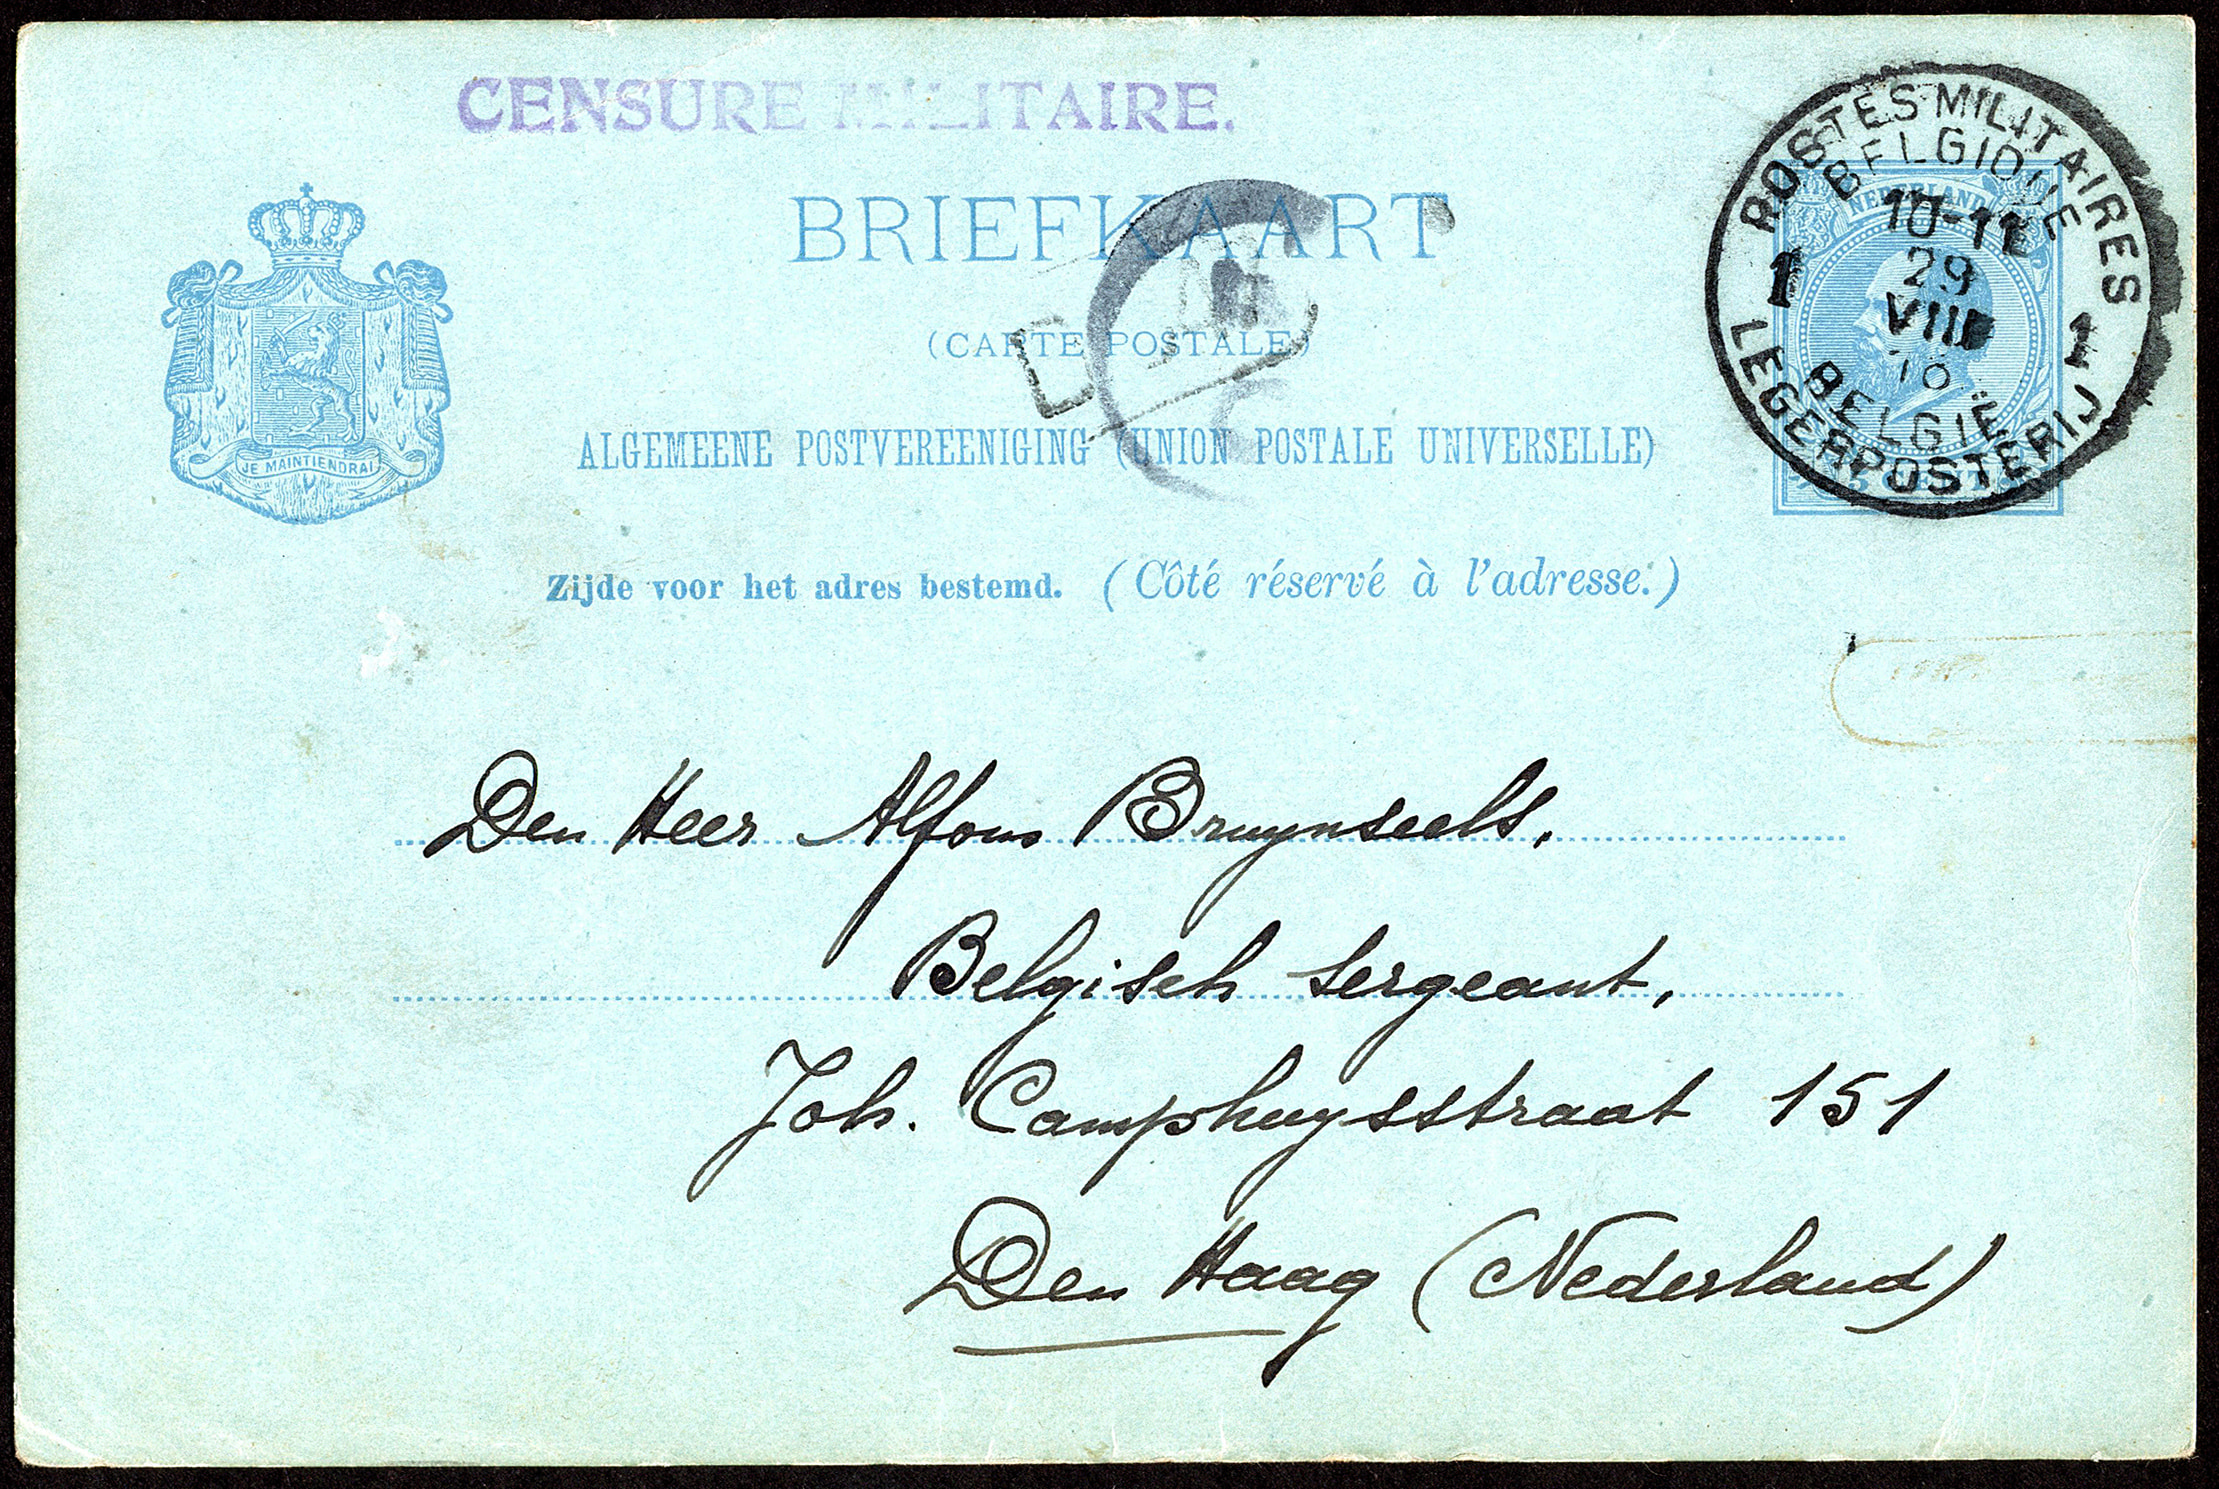 CENSURE MILITAIRE.
BRIEFKAART
(CARTE POSTALE)
ALGEMEENE POSTVEREENIGING (UNION POSTALE UNIVERSELLE)
Zijde voor het adres bestemd. (Côté réservé à l'adresse.)
JE MAINTIENDRAI
POSTES MILITAIRES
BELGIQUE
NEDERLAND
10-11
29
VIII
1 1
BELGIË
LEGERPOSTERIJ
5 CENT
Den Heer Alfons Bruynseels,
Belgisch sergeant,
Joh. Camphuysstraat 151
Den Haag (Nederland)